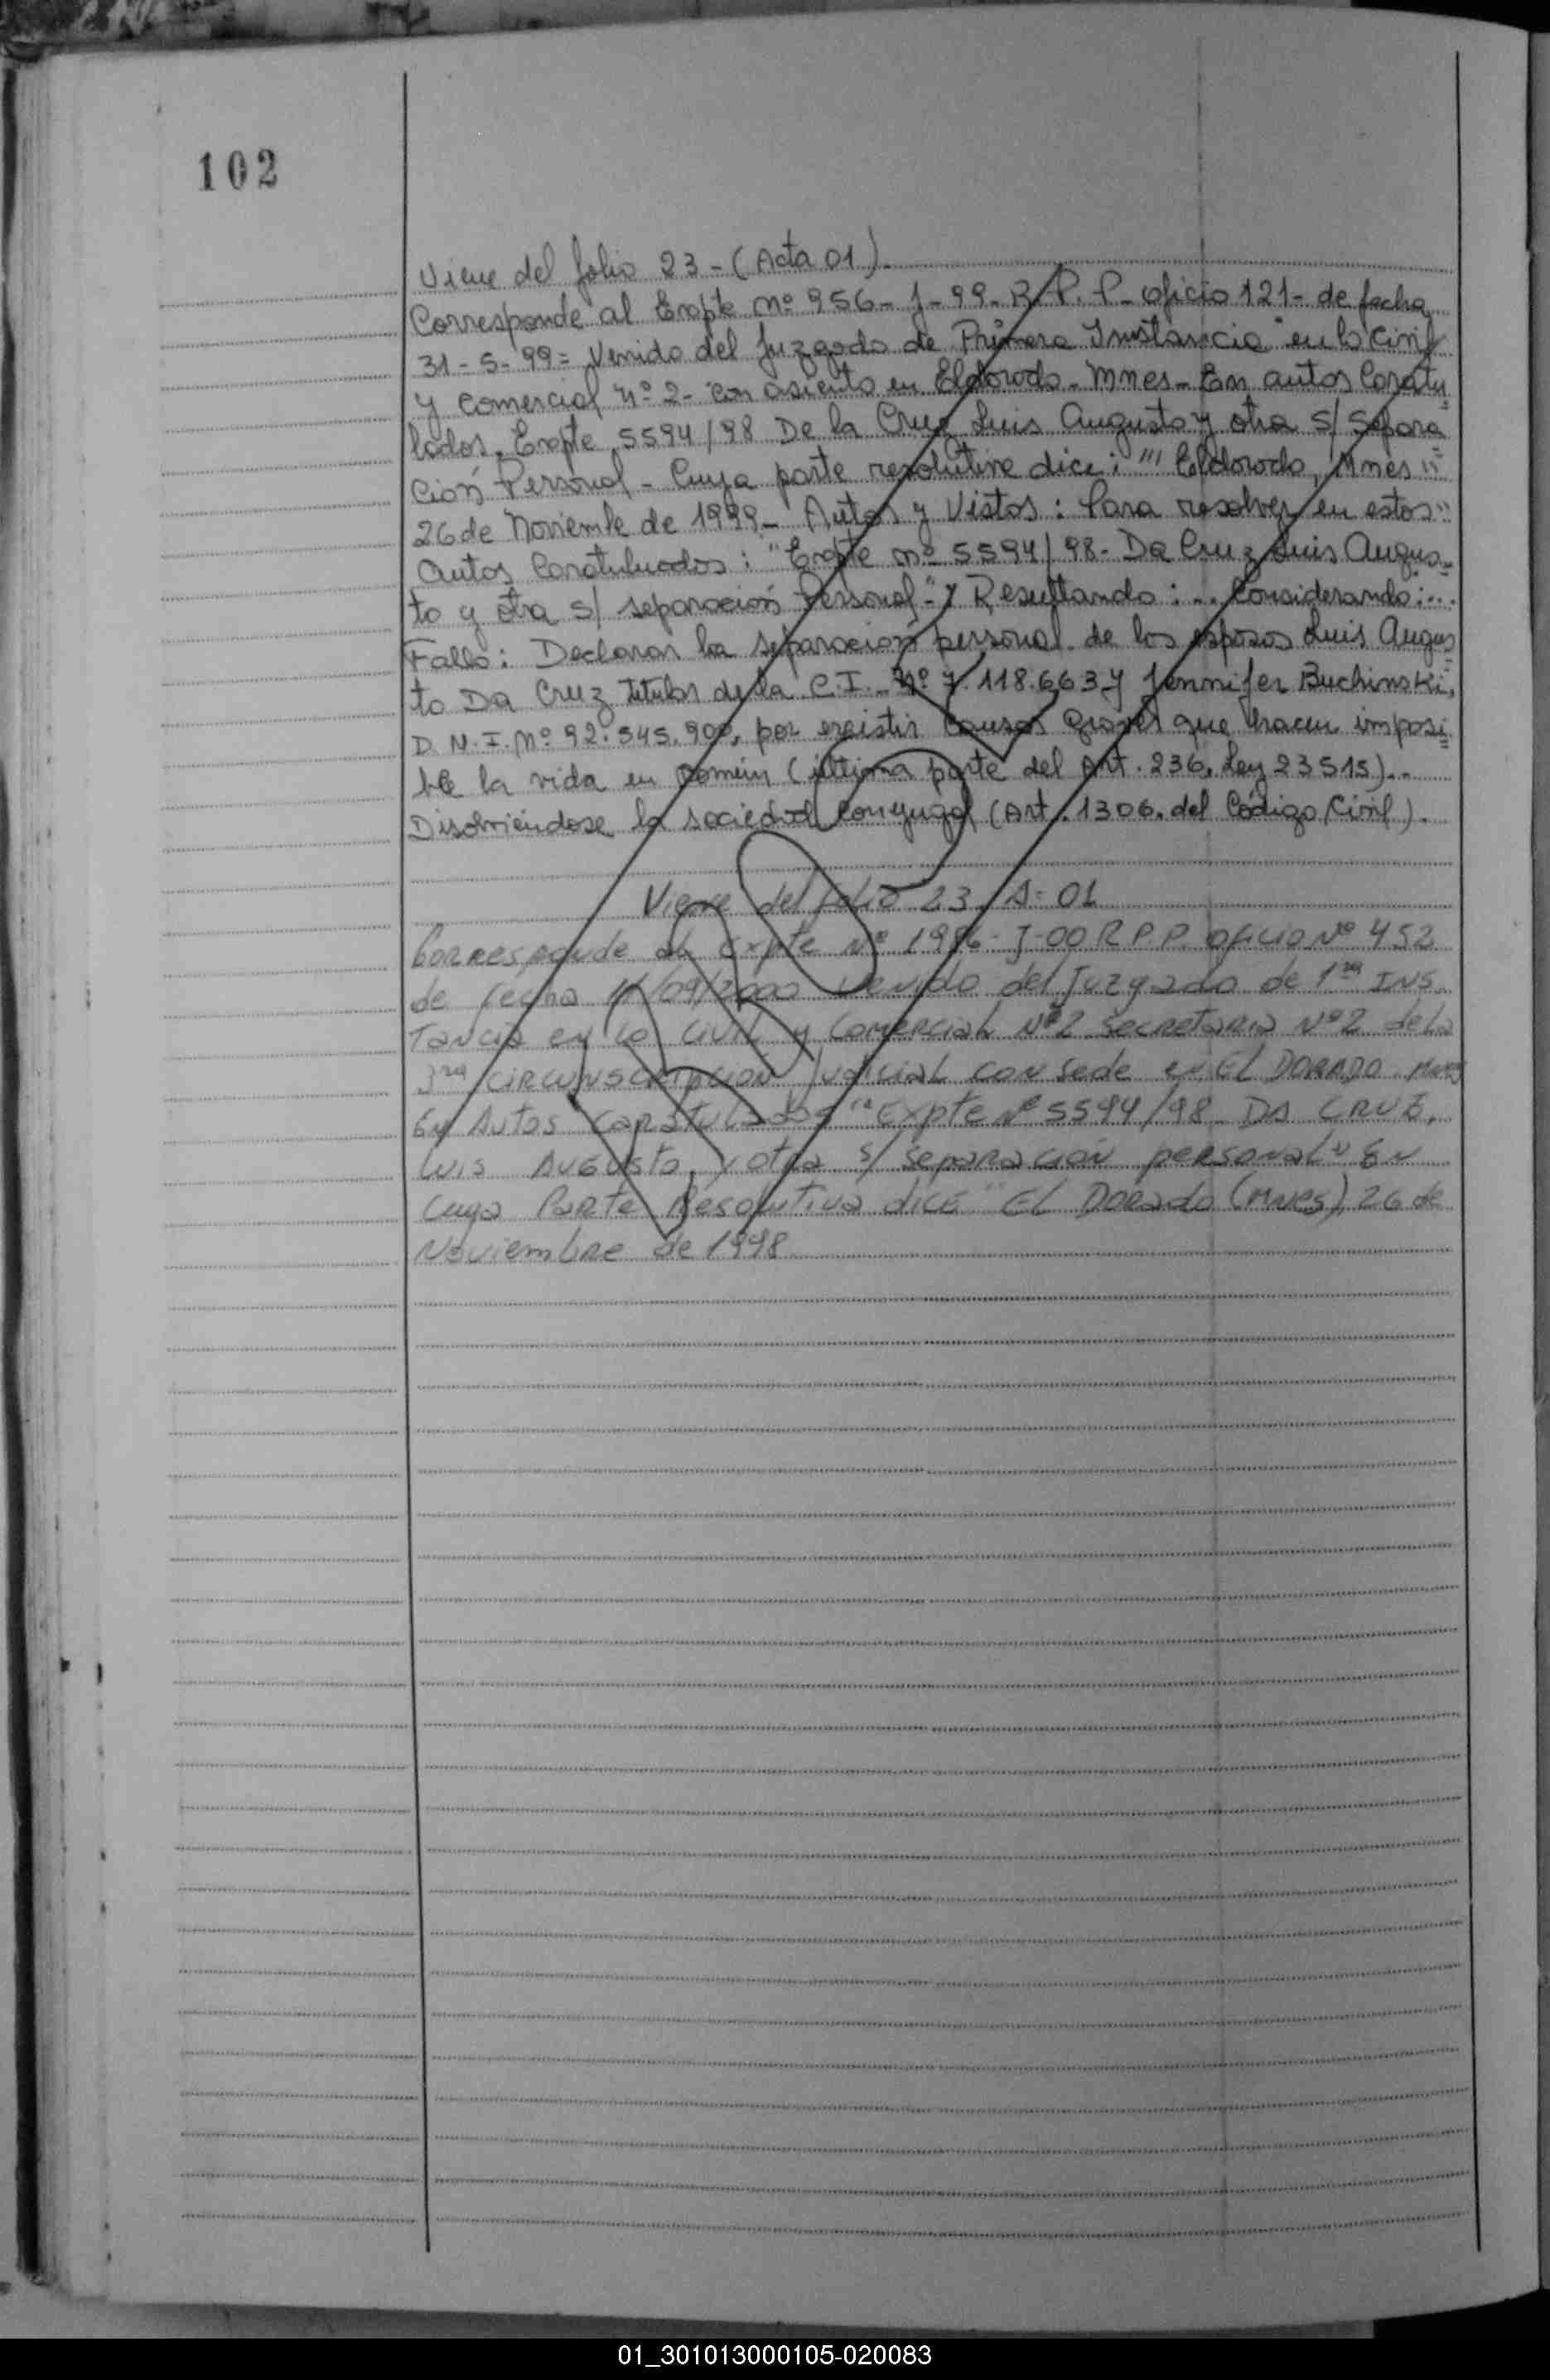 102
Viene del folio 23-(Acta 01).
Corresponde al Expte nº 956-J-99-R.P.P-oficio 121- de fecha
31-5-99= Venido del Juzgado de Primera Instancia en lo Civil
y Comercial nº 2- con asiento en Eldorado-Mnes-En autos Caratu
lados. Expte 5594/98 De la Cruz Luis Augusto y otra S/ Separa
ción Personal- Cuya parte resolutiva dice: "' Eldorado, Mnes "
26 de Noviembre de 1999- Autos y Vistos: Para resolver en estos"
autos Caratulados: "Expte nº 5594/98- Da Cruz Luis Augus
to y otra s/ separación Personal-" y Resultando:... Considerando:...
Fallo: Declarar la separación personal de los esposos Luis Augus
to Da Cruz titular de la C.I. nº 7.118.663 y Jennifer Buchinski,
D.N.I. Nº 92.545.900, por existir causas graves que hacen imposi
ble la vida en común (última parte del Art. 236, Ley 23515)..
Disolviéndose la sociedad conyugal (Art. 1306. del Código Civil).
Viene del folio 23 A=01
Corresponde al Expte Nº 1986-J-00 R.P.P. oficio Nº 452
de fecha 11/09/2000 venido del Juzgado de 1ra INS
tancia en lo Civil y Comercial Nº2 Secretaria Nº2 de la
3ra circunscripcion Judicial con sede en EL DORADO Mnes
En Autos caratulados "Expte Nº 5594/98 DA CRUZ,
Luis Augusto, y otra s/ separación personal" En
cuya Parte Resolutiva dice "EL Dorado (Mnes), 26 de
Noviembre de 1998
01_301013000105-020083